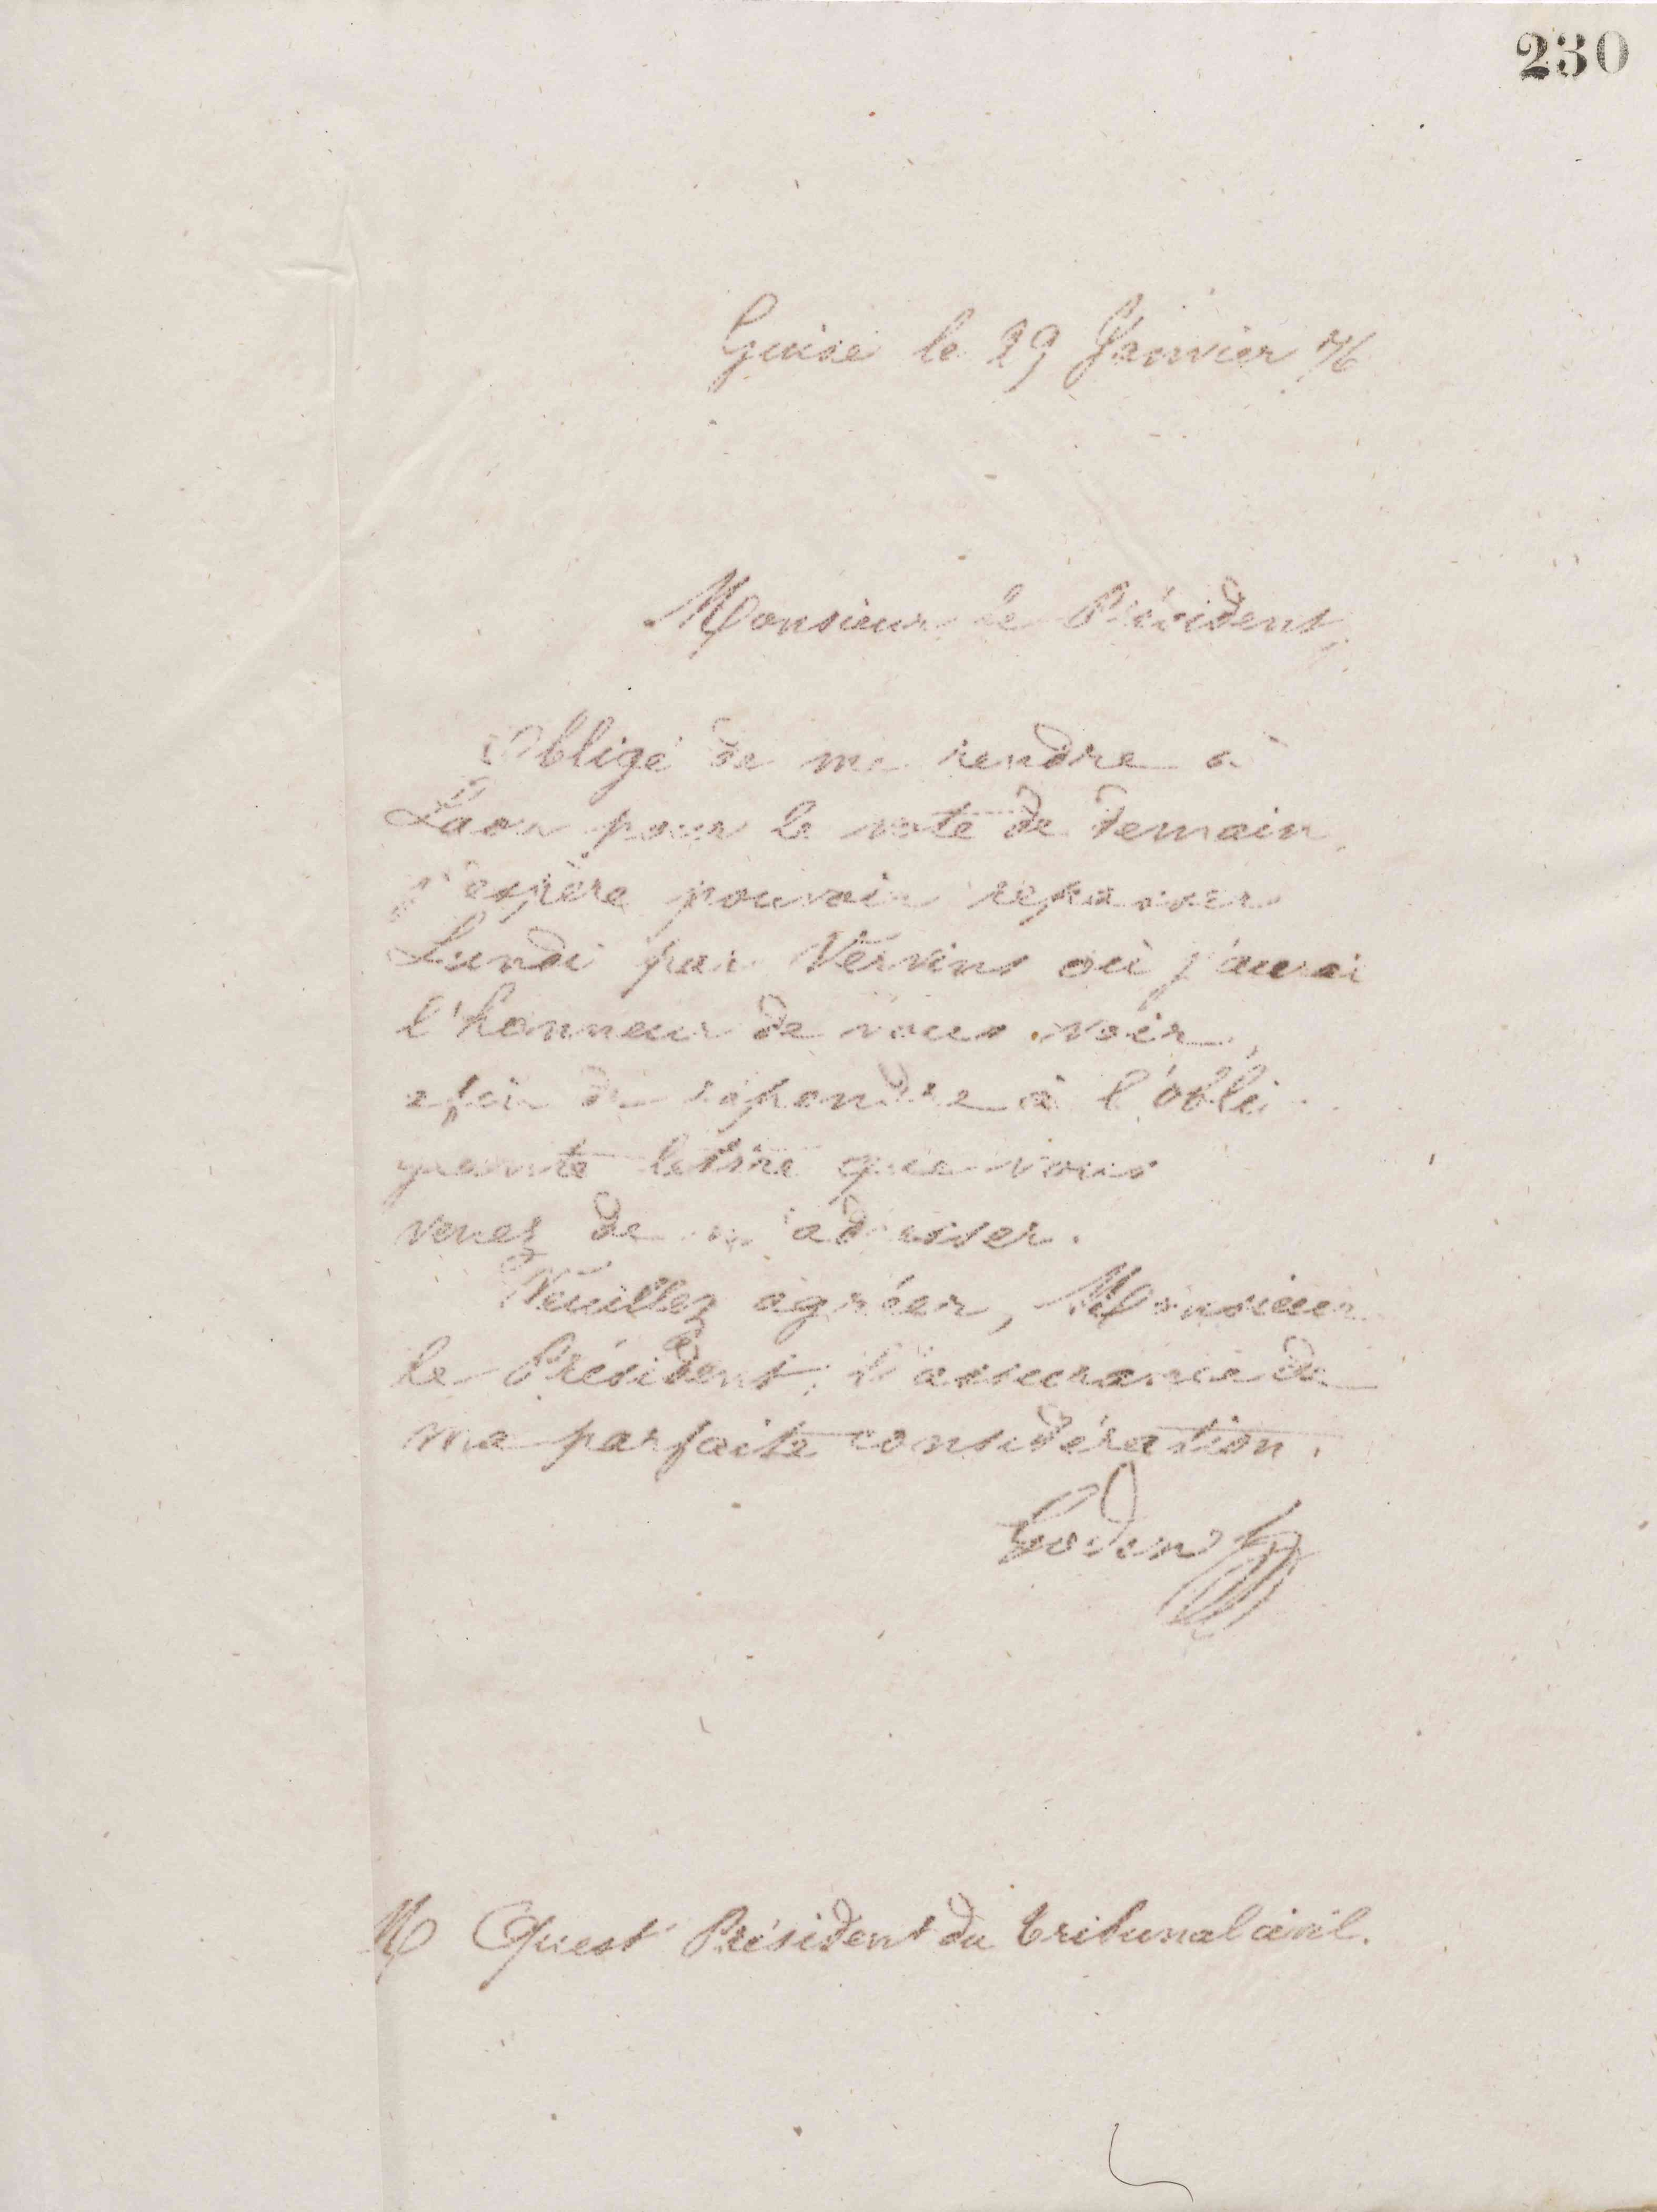 230
Guise le 29 Janvier 76
Monsieur le Président,
Obligé de me rendre à
Laon pour le vote de demain,
j'espère pouvoir repasser
Lundi par Vervins où j'aurai
l'honneur de vous voir,
afin de répondre à l'obli
geante lettre que vous
venez de m'adresser.
Veuillez agréer, Monsieur
le Président, l'assurance de
ma parfaite considération.
Godin
M Quest Président du tribunal civil.